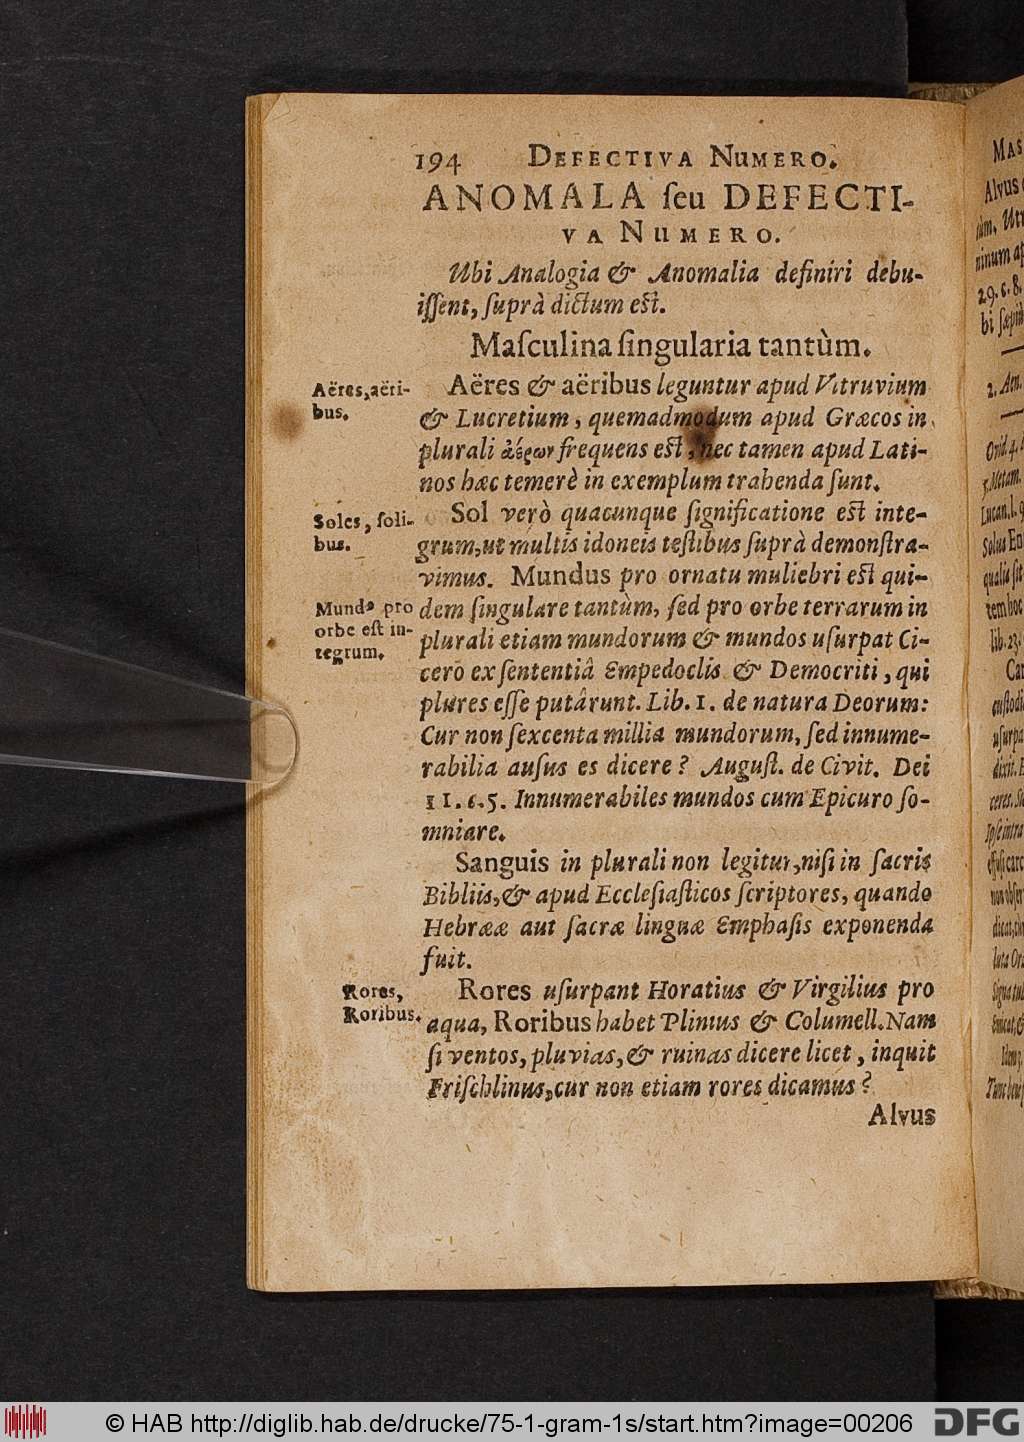 194 DEFECTIVA NUMERO.
ANOMALA ſeu DEFECTI-
VA NUMERO.
Ubi Analogia & Anomalia definiri debu-
iſſent, ſuprà dictum eſt.
Maſculina ſingularia tantùm.
Aëres, aëri-
bus.
Aëres & aëribus leguntur apud Vitruvium
& Lucretium, quemadmodum apud Græcos in
plurali ἀέρων frequens eſt, nec tamen apud Lati-
nos hæc temerè in exemplum trahenda ſunt.
Soles, ſoli-
bus.
Sol verò quacunque ſignificatione eſt inte-
grum, ut multis idoneis teſtibus ſuprà demonſtra-
vimus. Mundus pro ornatu muliebri eſt qui-
Mundꝰ pro
orbe eſt in-
tegrum.
dem ſingulare tantùm, ſed pro orbe terrarum in
plurali etiam mundorum & mundos uſurpat Ci-
cero ex ſententiâ Empedoclis & Democriti, qui
plures eſſe putârunt. Lib. 1. de natura Deorum:
Cur non ſexcenta millia mundorum, ſed innume-
rabilia auſus es dicere? Auguſt. de Civit. Dei
11. c. 5. Innumerabiles mundos cum Epicuro ſo-
mniare.
Sanguis in plurali non legitur, niſi in ſacris
Bibliis, & apud Eccleſiaſticos ſcriptores, quando
Hebrææ aut ſacræ linguæ Emphaſis exponenda
fuit.
Rores,
Roribus.
Rores uſurpant Horatius & Virgilius pro
aqua, Roribus habet Plinius & Columell. Nam
ſi ventos, pluvias, & ruinas dicere licet, inquit
Friſchlinus, cur non etiam rores dicamus?
Alvus
© HAB http://diglib.hab.de/drucke/75-1-gram-1s/start.htm?image=00206
DFG